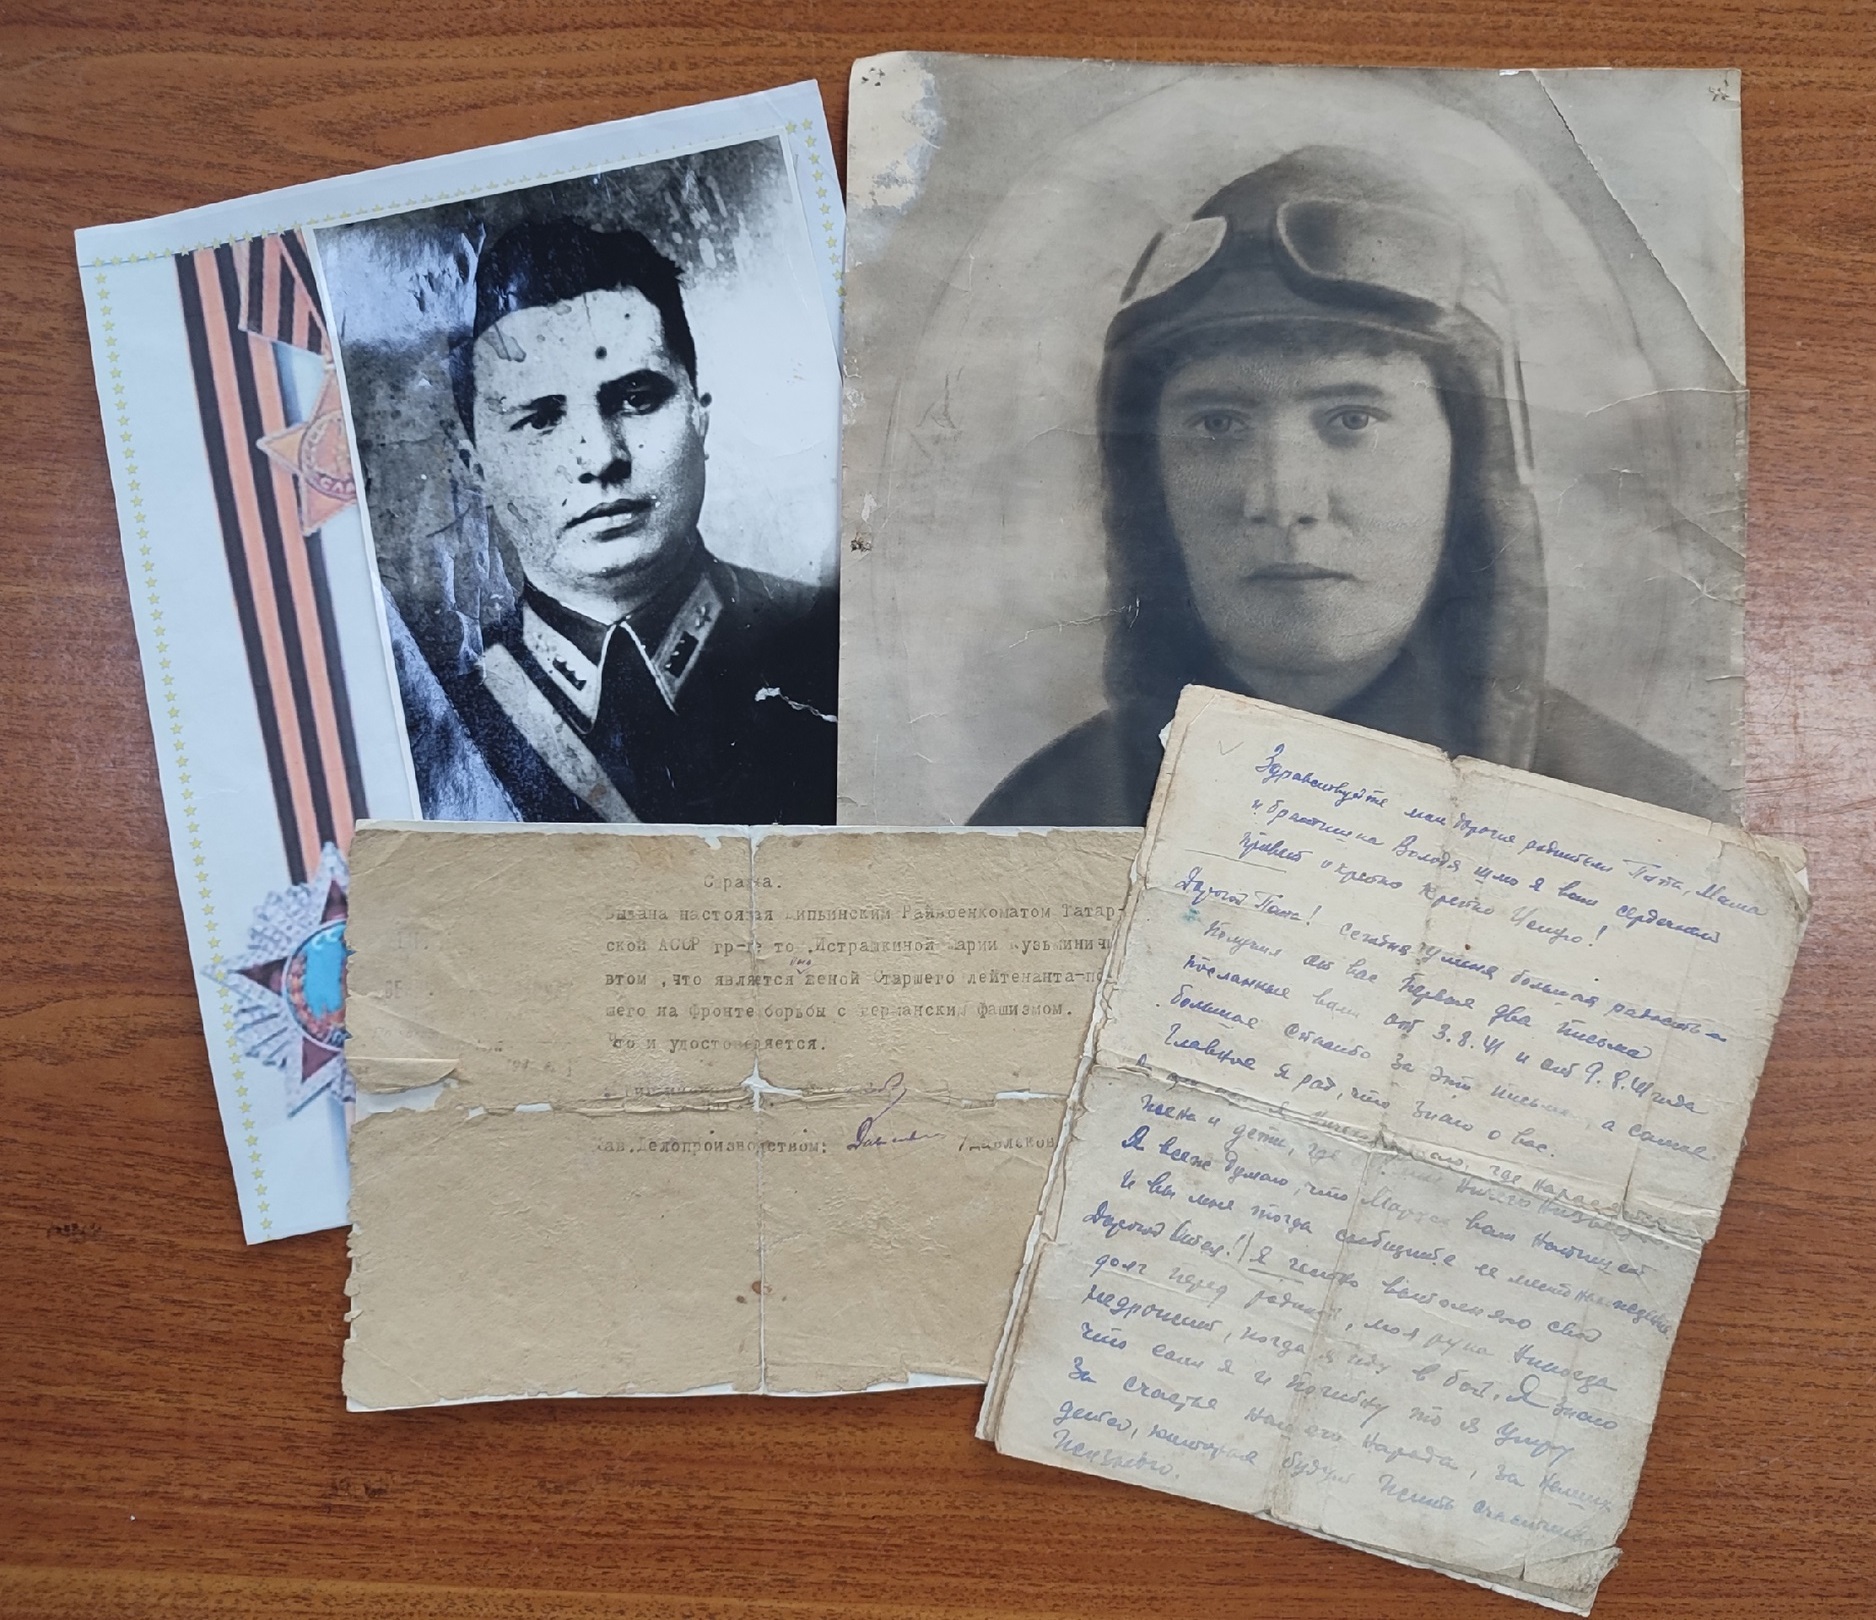 Справка.
Выдана настоящая Шипьинским Райвоенкоматом Татар-
ской АССР гр-ке то Истрашкиной Марии Кузьминич
в том, что является женой Старшего лейтенанта-по
шего на фронте борьбы с германским фашизмом.
Что и удостоверяется.
Зав. Делопроизводством: /Давлеков
Здравствуйте мои дорогие родители Папа, Мама
и братишка Володя шлю я вам сердечный
Привет и крепко крепко Целую!
Дорогой Папа! Сегодня у меня большая радость я
Получил от вас Первые два письма
посланные вами от 3.8.41 и от 9.8.41 года
большое спасибо за эти письма, а самое
Главное я рад, что знаю о вас.
где находятся
Жена и дети, где
Я все же думаю, что Маруся вам Напишет
И вы мне тогда сообщите ее местонахождение
Дорогой Отец! Я честно выполняю свой
долг перед родиной, моя рука Никогда
недрожит, когда я иду в бой. Я знаю
что если я и погибну то я Умру
За счастье нашего Народа, за наших
детей, которые будут Жить счастливой
Жизнью.